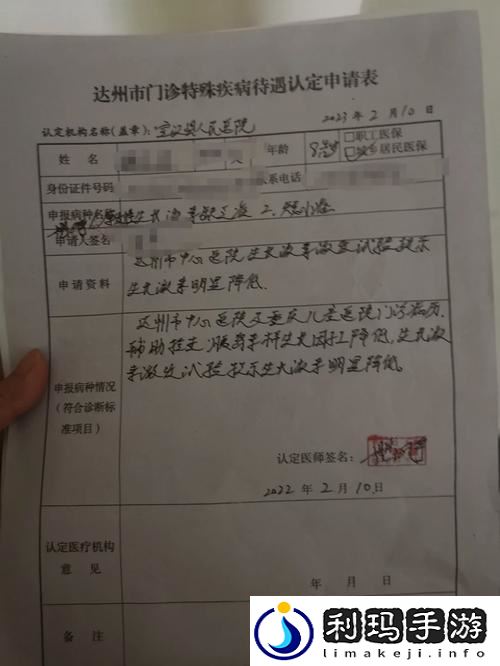 达州市门诊特殊疾病待遇认定申请表
认定机构名称(盖章): 宣汉县人民医院 2023年2月10日
姓名 年龄 8岁 □职工医保
□城乡居民医保
身份证件号码 联系电话
申报病种名称 生长激素缺乏症 2.
申请人签名
申请资料
达州市中心医院生长激素激发试验提示
生长激素明显降低.
申报病种情况
(符合诊断标
准项目)
达州市中心医院及重庆儿童医院门诊病历.
辅助检查:胰岛素样生长因子降低,生长激
素激发试验提示生长激素明显降低.
认定医师签名:
2022年2月10日
认定医疗机构
意见
年 月 日
备注
利玛手游
limakeji.info.vhdf